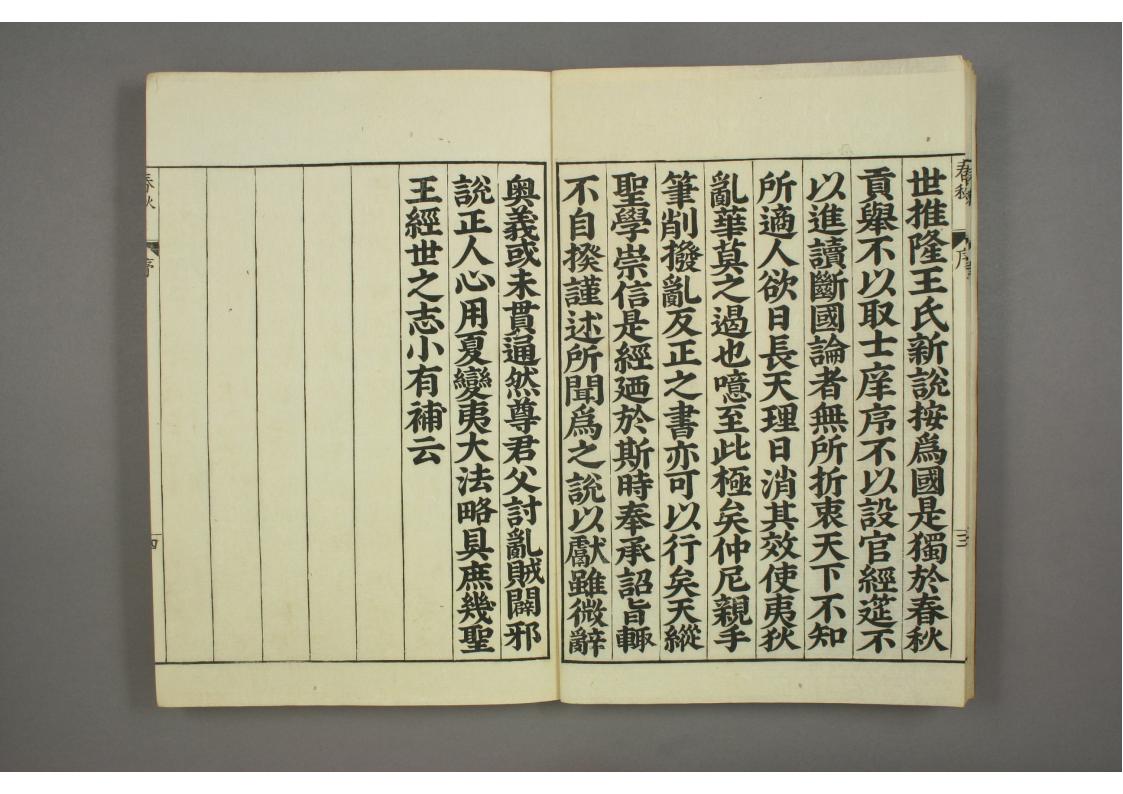 世推隆王氏新說按爲國是獨於春秋
貢舉不以取士庠序不以設官經筵不
以進讀斷國論者無所折衷天下不知
所適人欲日長天理日消其效使夷狄
亂華莫之遏也噫至此極矣仲尼親手
筆削撥亂反正之書亦可以行矣天縱
聖學崇信是經廼於斯時奉承詔旨輙
不自揆謹述所聞爲之說以獻雖微辭
奥義或未貫通然尊君父討亂賊闢邪
說正人心用夏變夷大法略具庶幾聖
王經世之志小有補云
春秋
序
三
春秋
序
四